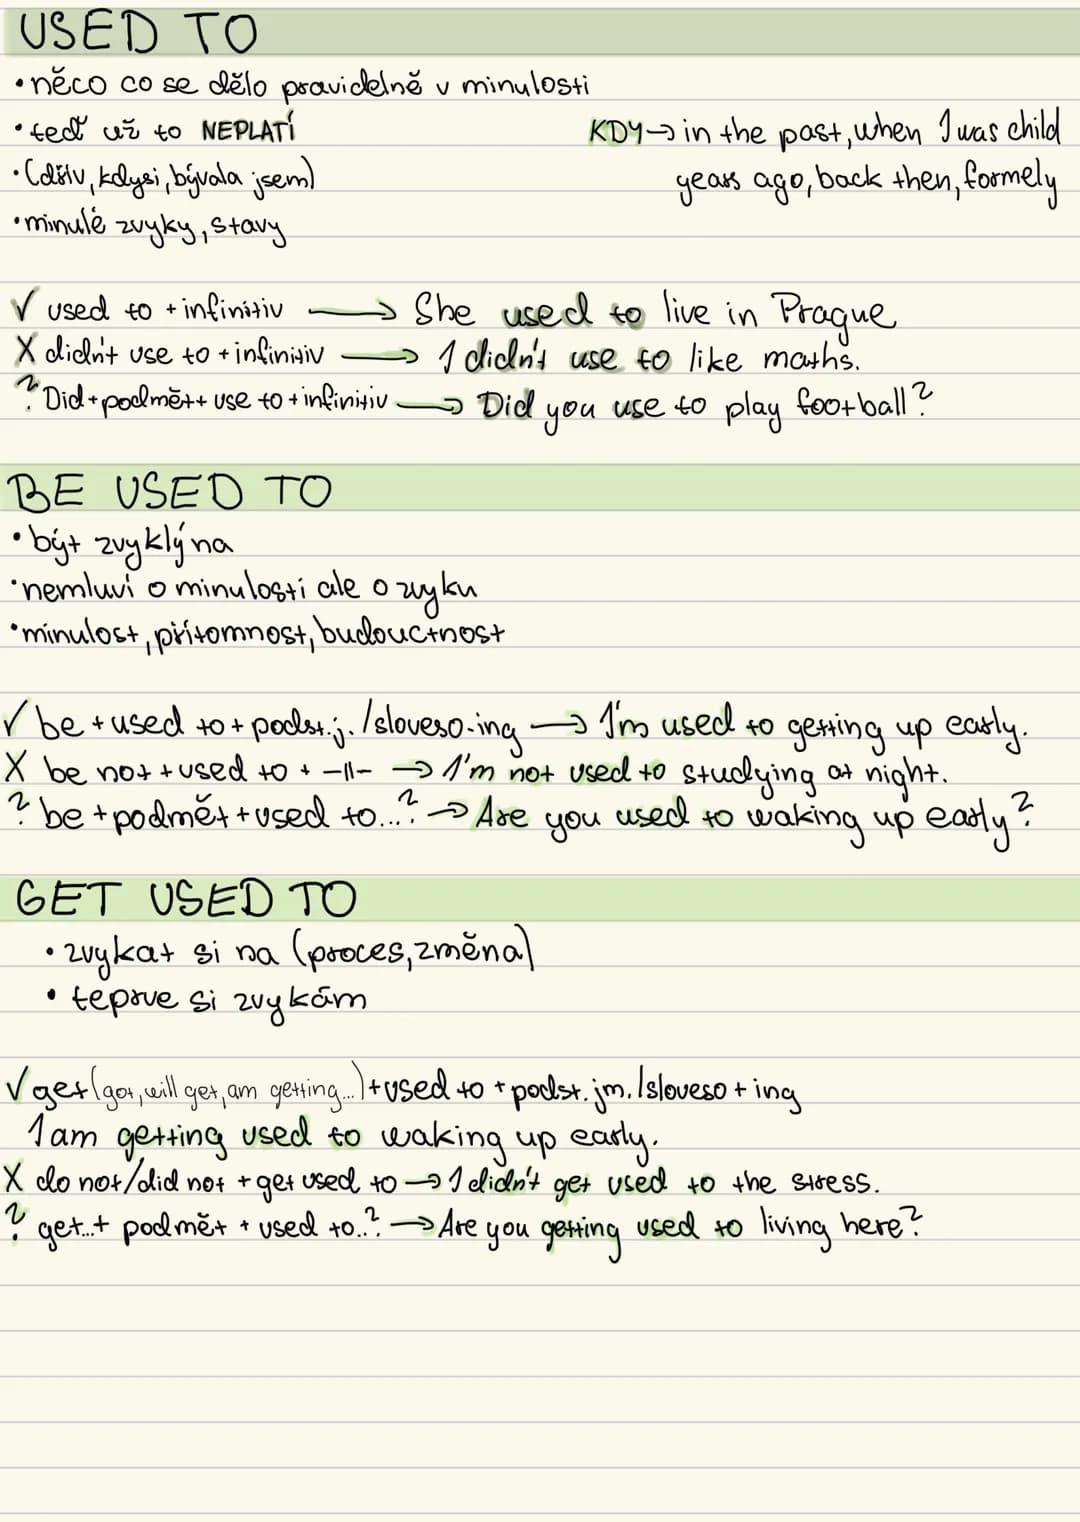 USED TO
•něco co se dělo pravidelně v minulosti
•teď už to NEPLATÍ
KDY→in the past, when I was child
•(dřív, kdysi, bývala jsem)
years ago, back then, formely
•minulé zvyky, stavy
√ used to + infinitiv → She used to live in Prague
X didn't use to + infinitiv → I didn't use to like maths.
? Did + podmět + use to + infinitiv → Did you use to play football?
BE USED TO
•být zvyklý na
•nemluví o minulosti ale o zvyku
•minulost, přítomnost, budouctnost
√ be + used to + podst.j. /sloveso-ing → I'm used to getting up early.
X be not + used to + -||- → I'm not used to studying at night.
? be + podmět + used to...? → Are you used to waking up early?
GET USED TO
•zvykat si na (proces, změna)
•teprve si zvykám
√ get (got, will get, am getting...) + used to + podst. jm. /sloveso + ing
I am getting used to waking up early.
X do not/did not + get used to → I didn't get used to the stress.
? get...+ podmět + used to..? → Are you getting used to living here?